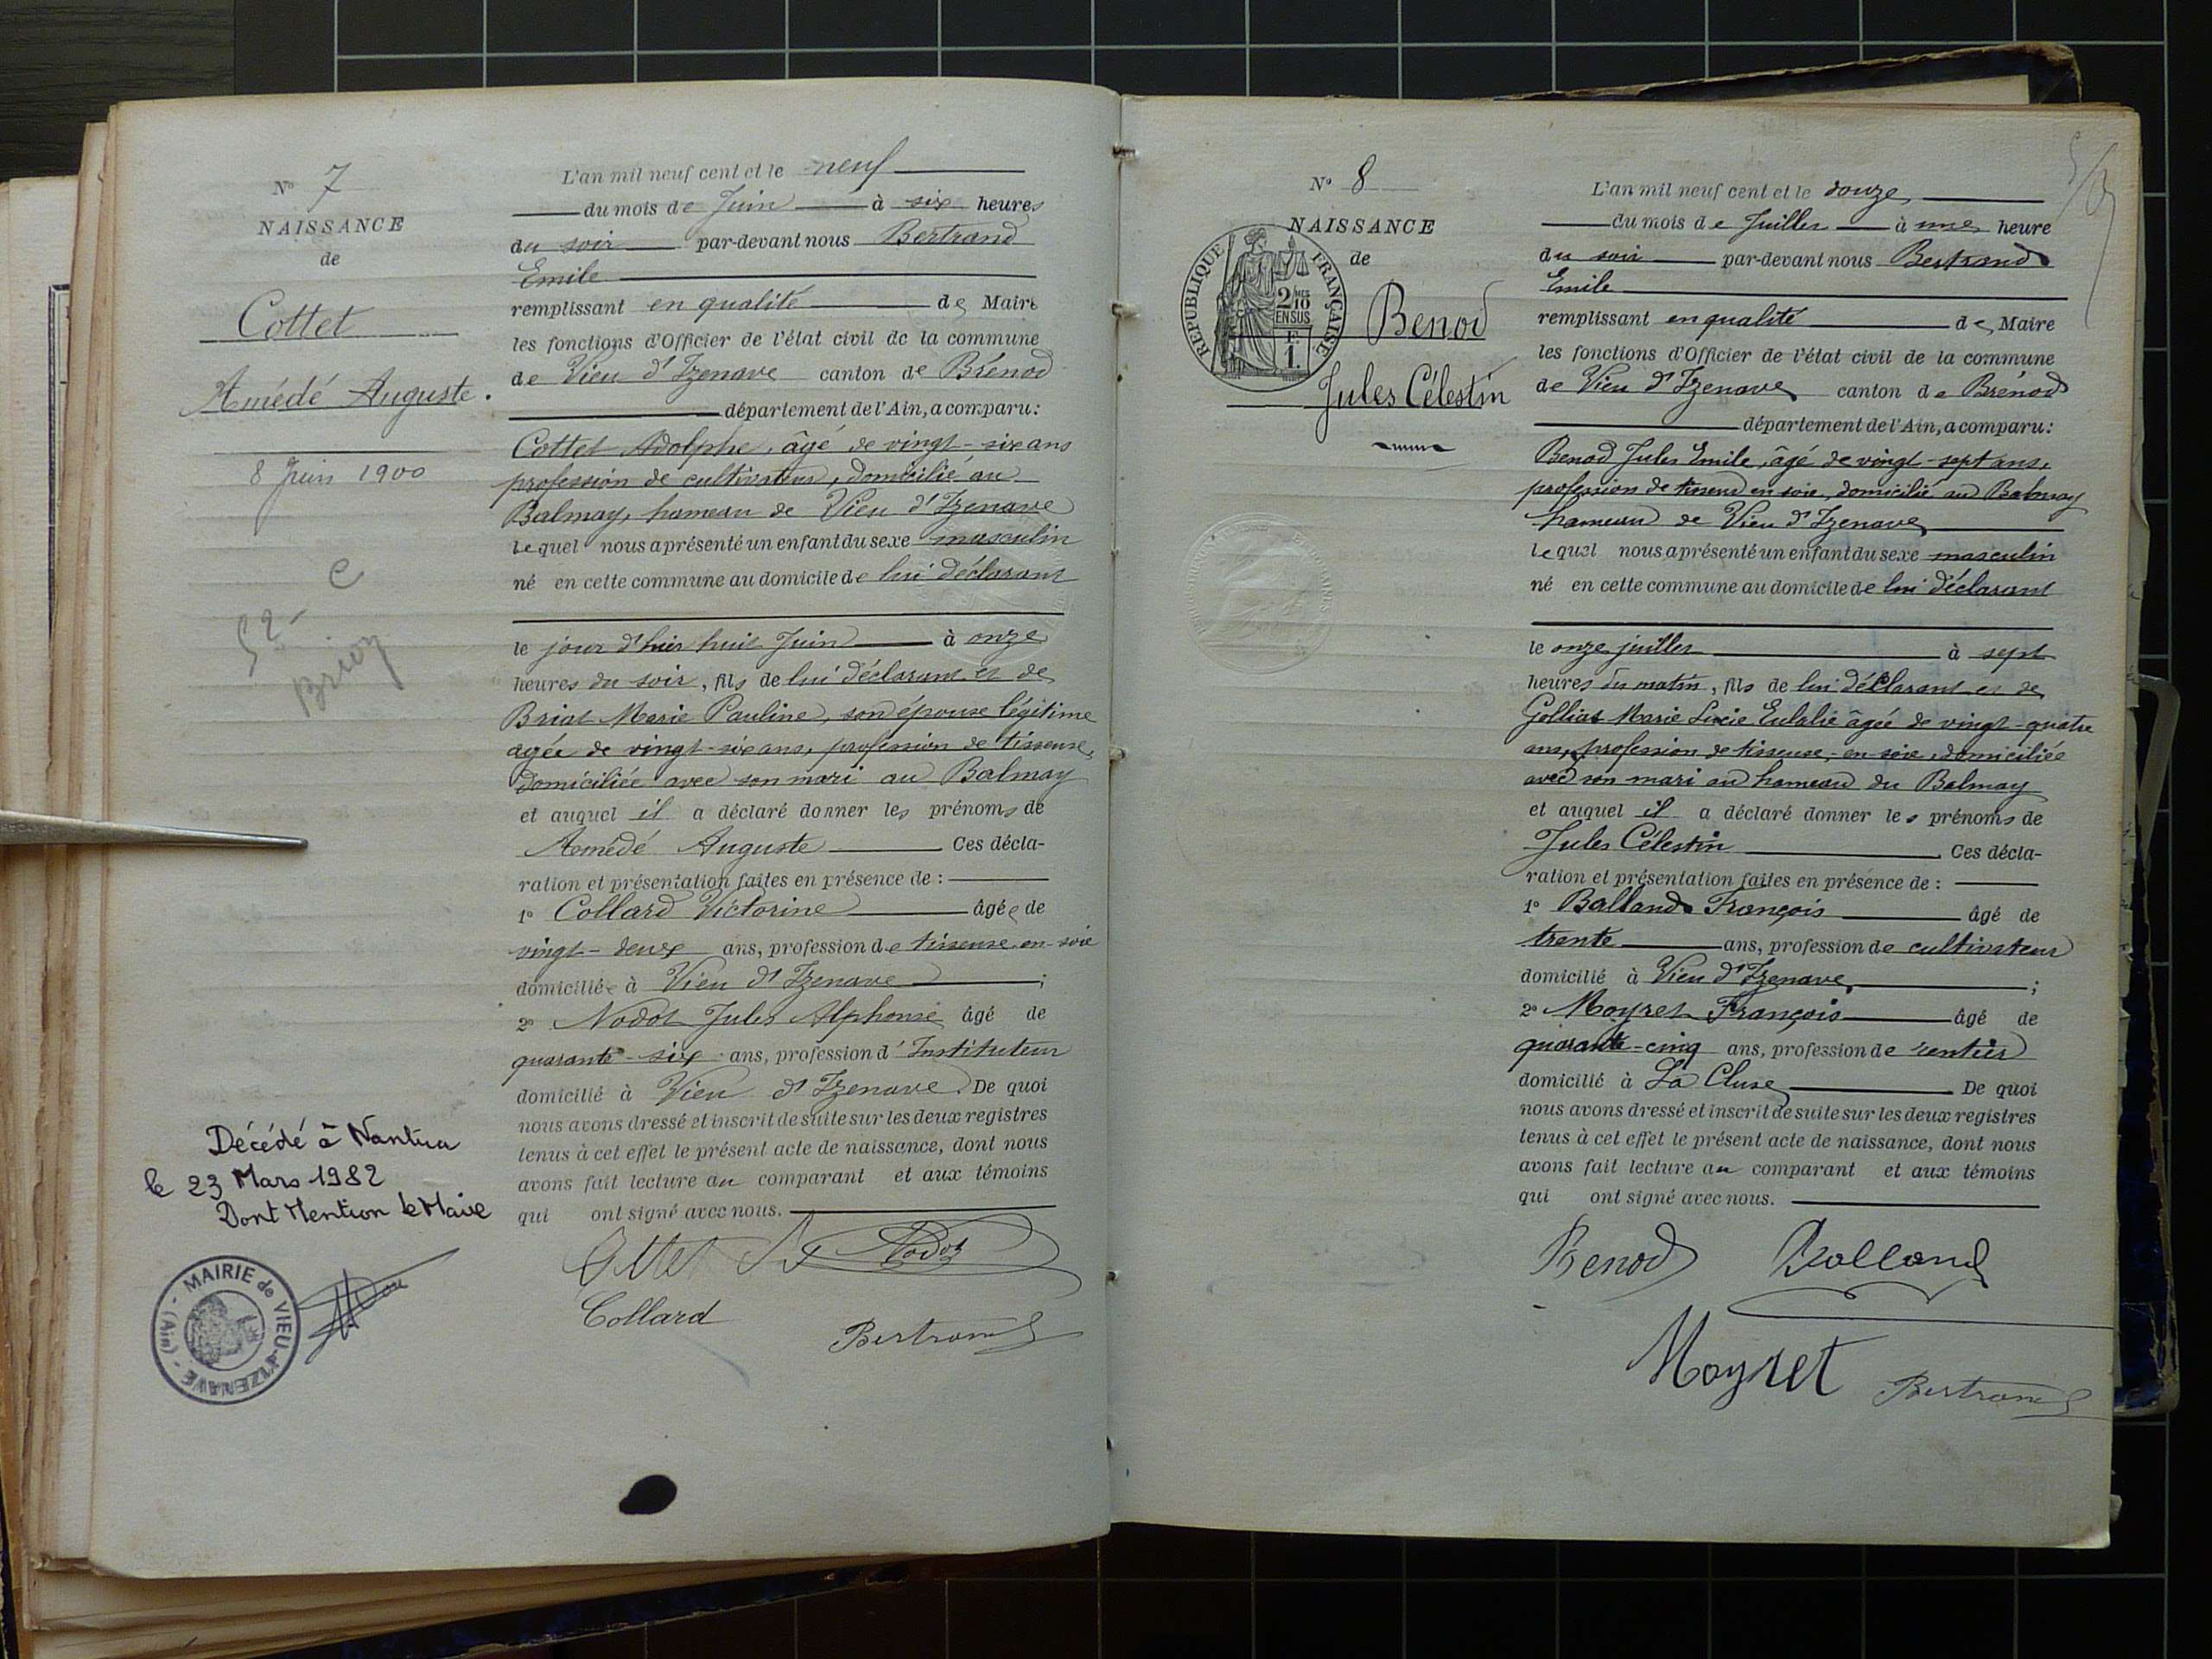 N° 7
NAISSANCE
de
Cottet
Amédé Auguste.
8 Juin 1900
Décédé à Nantua
le 23 Mars 1982
Dont Mention le Maire
MAIRIE de VIEU-d'IZENAVE - (Ain) -
L'an mil neuf cent et le neuf
du mois de Juin à six heures
du soir par-devant nous Bertrand
Emile
remplissant en qualité de Maire
les fonctions d'Officier de l'état civil de la commune
de Vieu d'Izenave canton de Brénod
département de l'Ain, a comparu:
Cottet Adolphe, âgé de vingt-six ans
profession de cultivateur, domicilié au
Balmay, hameau de Vieu d'Izenave
lequel nous a présenté un enfant du sexe masculin
né en cette commune au domicile de lui déclarant
le jour d'hier huit Juin à onze
heures du soir, fils de lui déclarant et de
Briat Marie Pauline, son épouse légitime
agée de vingt-six ans, profession de tisseuse,
domiciliée avec son mari au Balmay
et auquel il a déclaré donner les prénoms de
Amédé Auguste Ces décla-
ration et présentation faites en présence de :
1° Collard Victorine âgée de
vingt-deux ans, profession de tisseuse en soie
domiciliée à Vieu d'Izenave ;
2° Nodot Jules Alphonse âgé de
quarante-six ans, profession d'Instituteur
domicilié à Vieu d'Izenave. De quoi
nous avons dressé et inscrit de suite sur les deux registres
tenus à cet effet le présent acte de naissance, dont nous
avons fait lecture au comparant et aux témoins
qui ont signé avec nous.
Cottet Nodot
Collard
Bertrand
N° 8
NAISSANCE
de
REPUBLIQUE FRANÇAISE
2/10 EN SUS
1 F.
Benod
Jules Célestin
L'an mil neuf cent et le douze
du mois de Juillet à une heure
du soir par-devant nous Bertrand
Emile
remplissant en qualité de Maire
les fonctions d'Officier de l'état civil de la commune
de Vieu d'Izenave canton de Brénod
département de l'Ain, a comparu:
Benod Jules Emile, âgé de vingt-sept ans,
profession de tisseur en soie, domicilié au Balmay
hameau de Vieu d'Izenave
lequel nous a présenté un enfant du sexe masculin
né en cette commune au domicile de lui déclarant
le onze juillet à sept
heures du matin, fils de lui déclarant et de
Golliat Marie Lucie Eulalie âgée de vingt-quatre
ans, profession de tisseuse-en-soie, domiciliée
avec son mari au hameau du Balmay
et auquel il a déclaré donner les prénoms de
Jules Célestin Ces décla-
ration et présentation faites en présence de :
1° Balland François âgé de
trente ans, profession de cultivateur
domicilié à Vieu d'Izenave, ;
2° Moyret François âgé de
quarante-cinq ans, profession de rentier
domicilié à La Cluse De quoi
nous avons dressé et inscrit de suite sur les deux registres
tenus à cet effet le présent acte de naissance, dont nous
avons fait lecture au comparant et aux témoins
qui ont signé avec nous.
Benod Balland
Moyret Bertrand